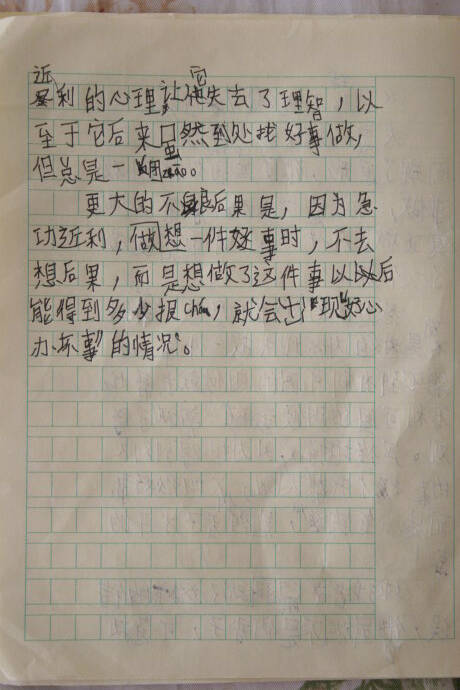 近利的心理让它失去了理智，以
至于它后来虽然到处找好事做，
但总是一团zāo。
更大的不良后果是，因为急
功近利，做想一件好事时，不去
想后果，而是想做了这件事以后
能得到多少报chou，就会出“现好心
办坏事”的情况。